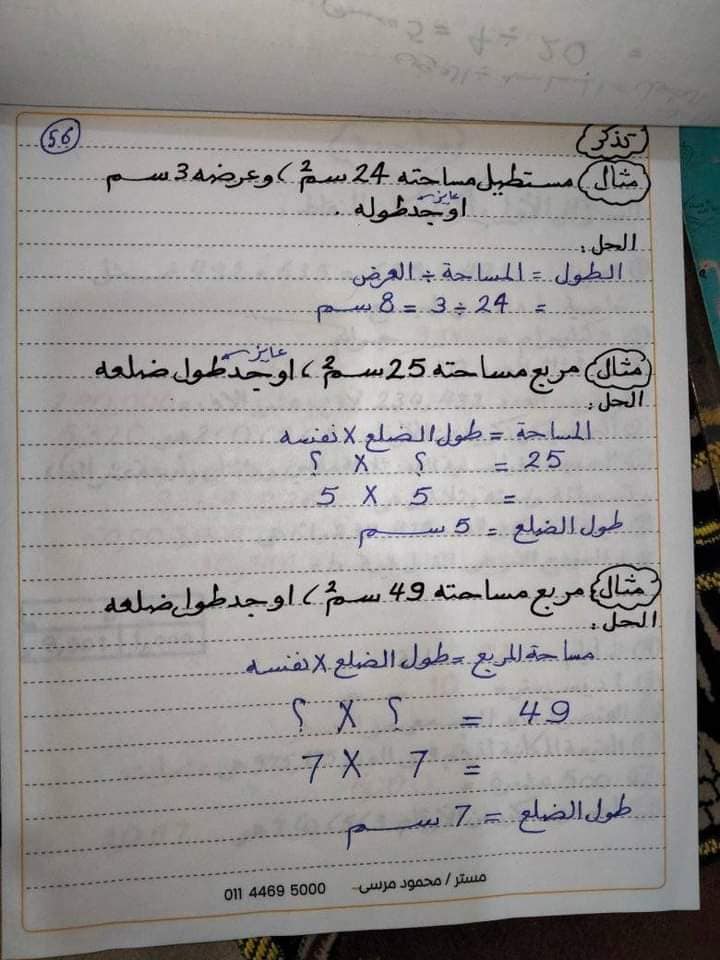 56
تذكر
مثال مستطيل مساحته 24 سم2، وعرضه 3 سم
عايز
اوجد طوله .
الحل:
الطول = المساحة ÷ العرض
= 24 ÷ 3 = 8 سم
عايز
مثال مربع مساحته 25 سم2، اوجد طول ضلعه
الحل:
المساحة = طول الضلع X نفسه
25 = ؟ X ؟
= 5 X 5
طول الضلع = 5 سم
مثال مربع مساحته 49 سم2، اوجد طول ضلعه
الحل:
مساحة المربع = طول الضلع X نفسه
49 = ؟ X ؟
= 7 X 7
طول الضلع = 7 سم
مستر / محمود مرسى 011 4469 5000